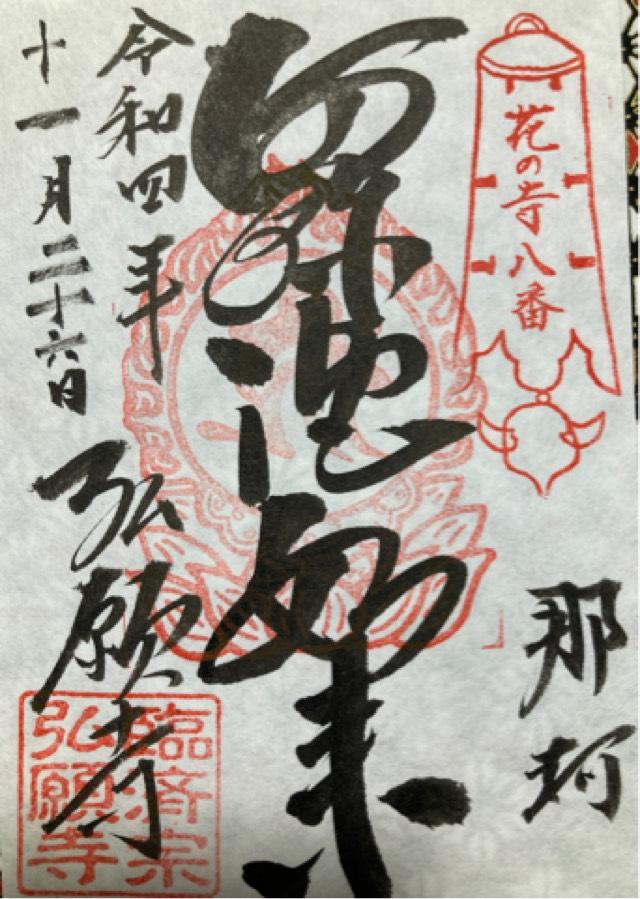 花の寺八番
那珂
阿弥陀如来
令和四年
十一月二十六日
弘願寺
臨済宗
弘願寺